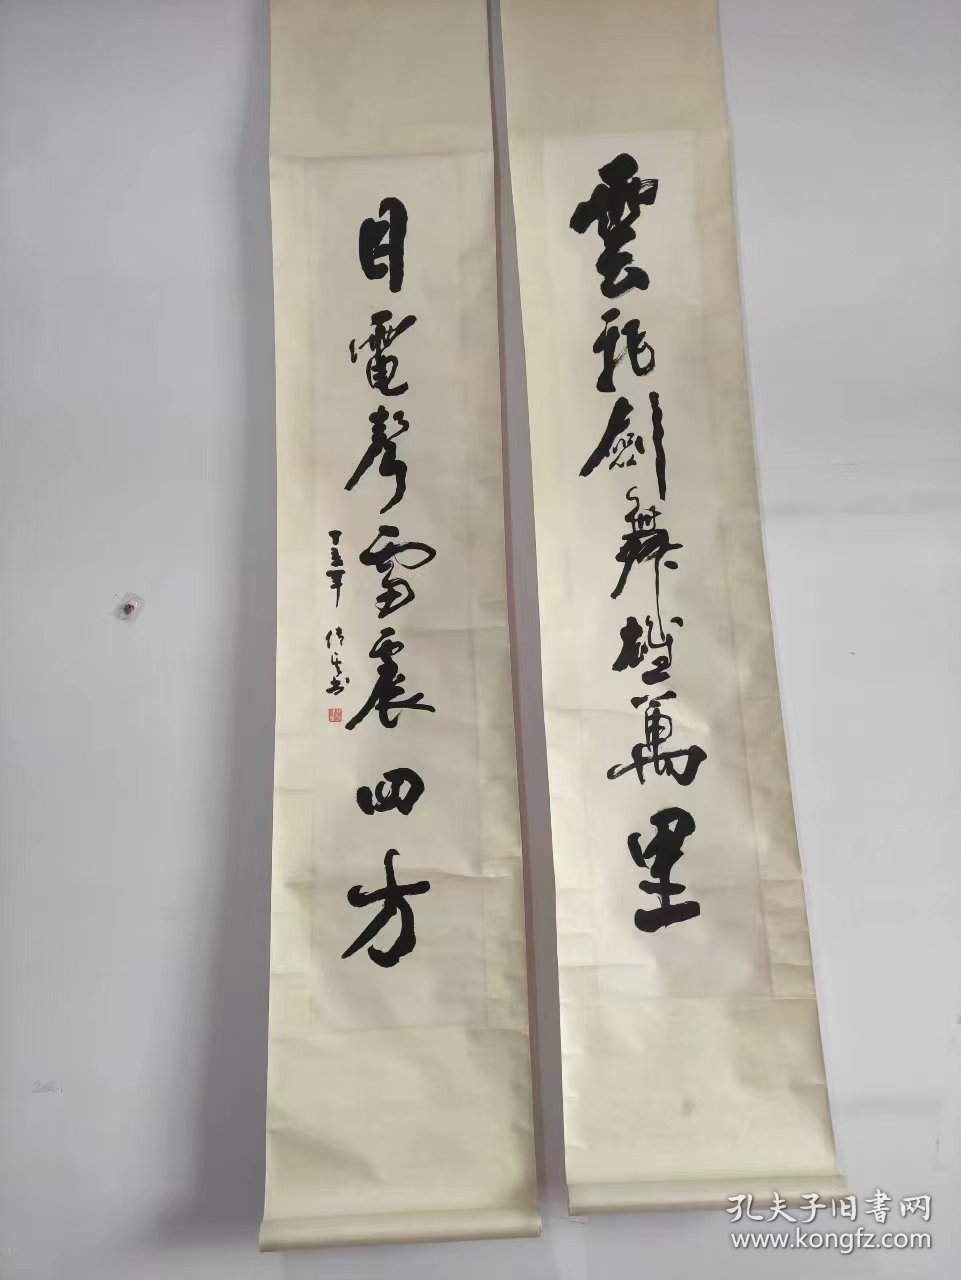 雲飛劍舞雄萬里
目電聲雷震四方
丁亥年
孔夫子旧书网
www.kongfz.com